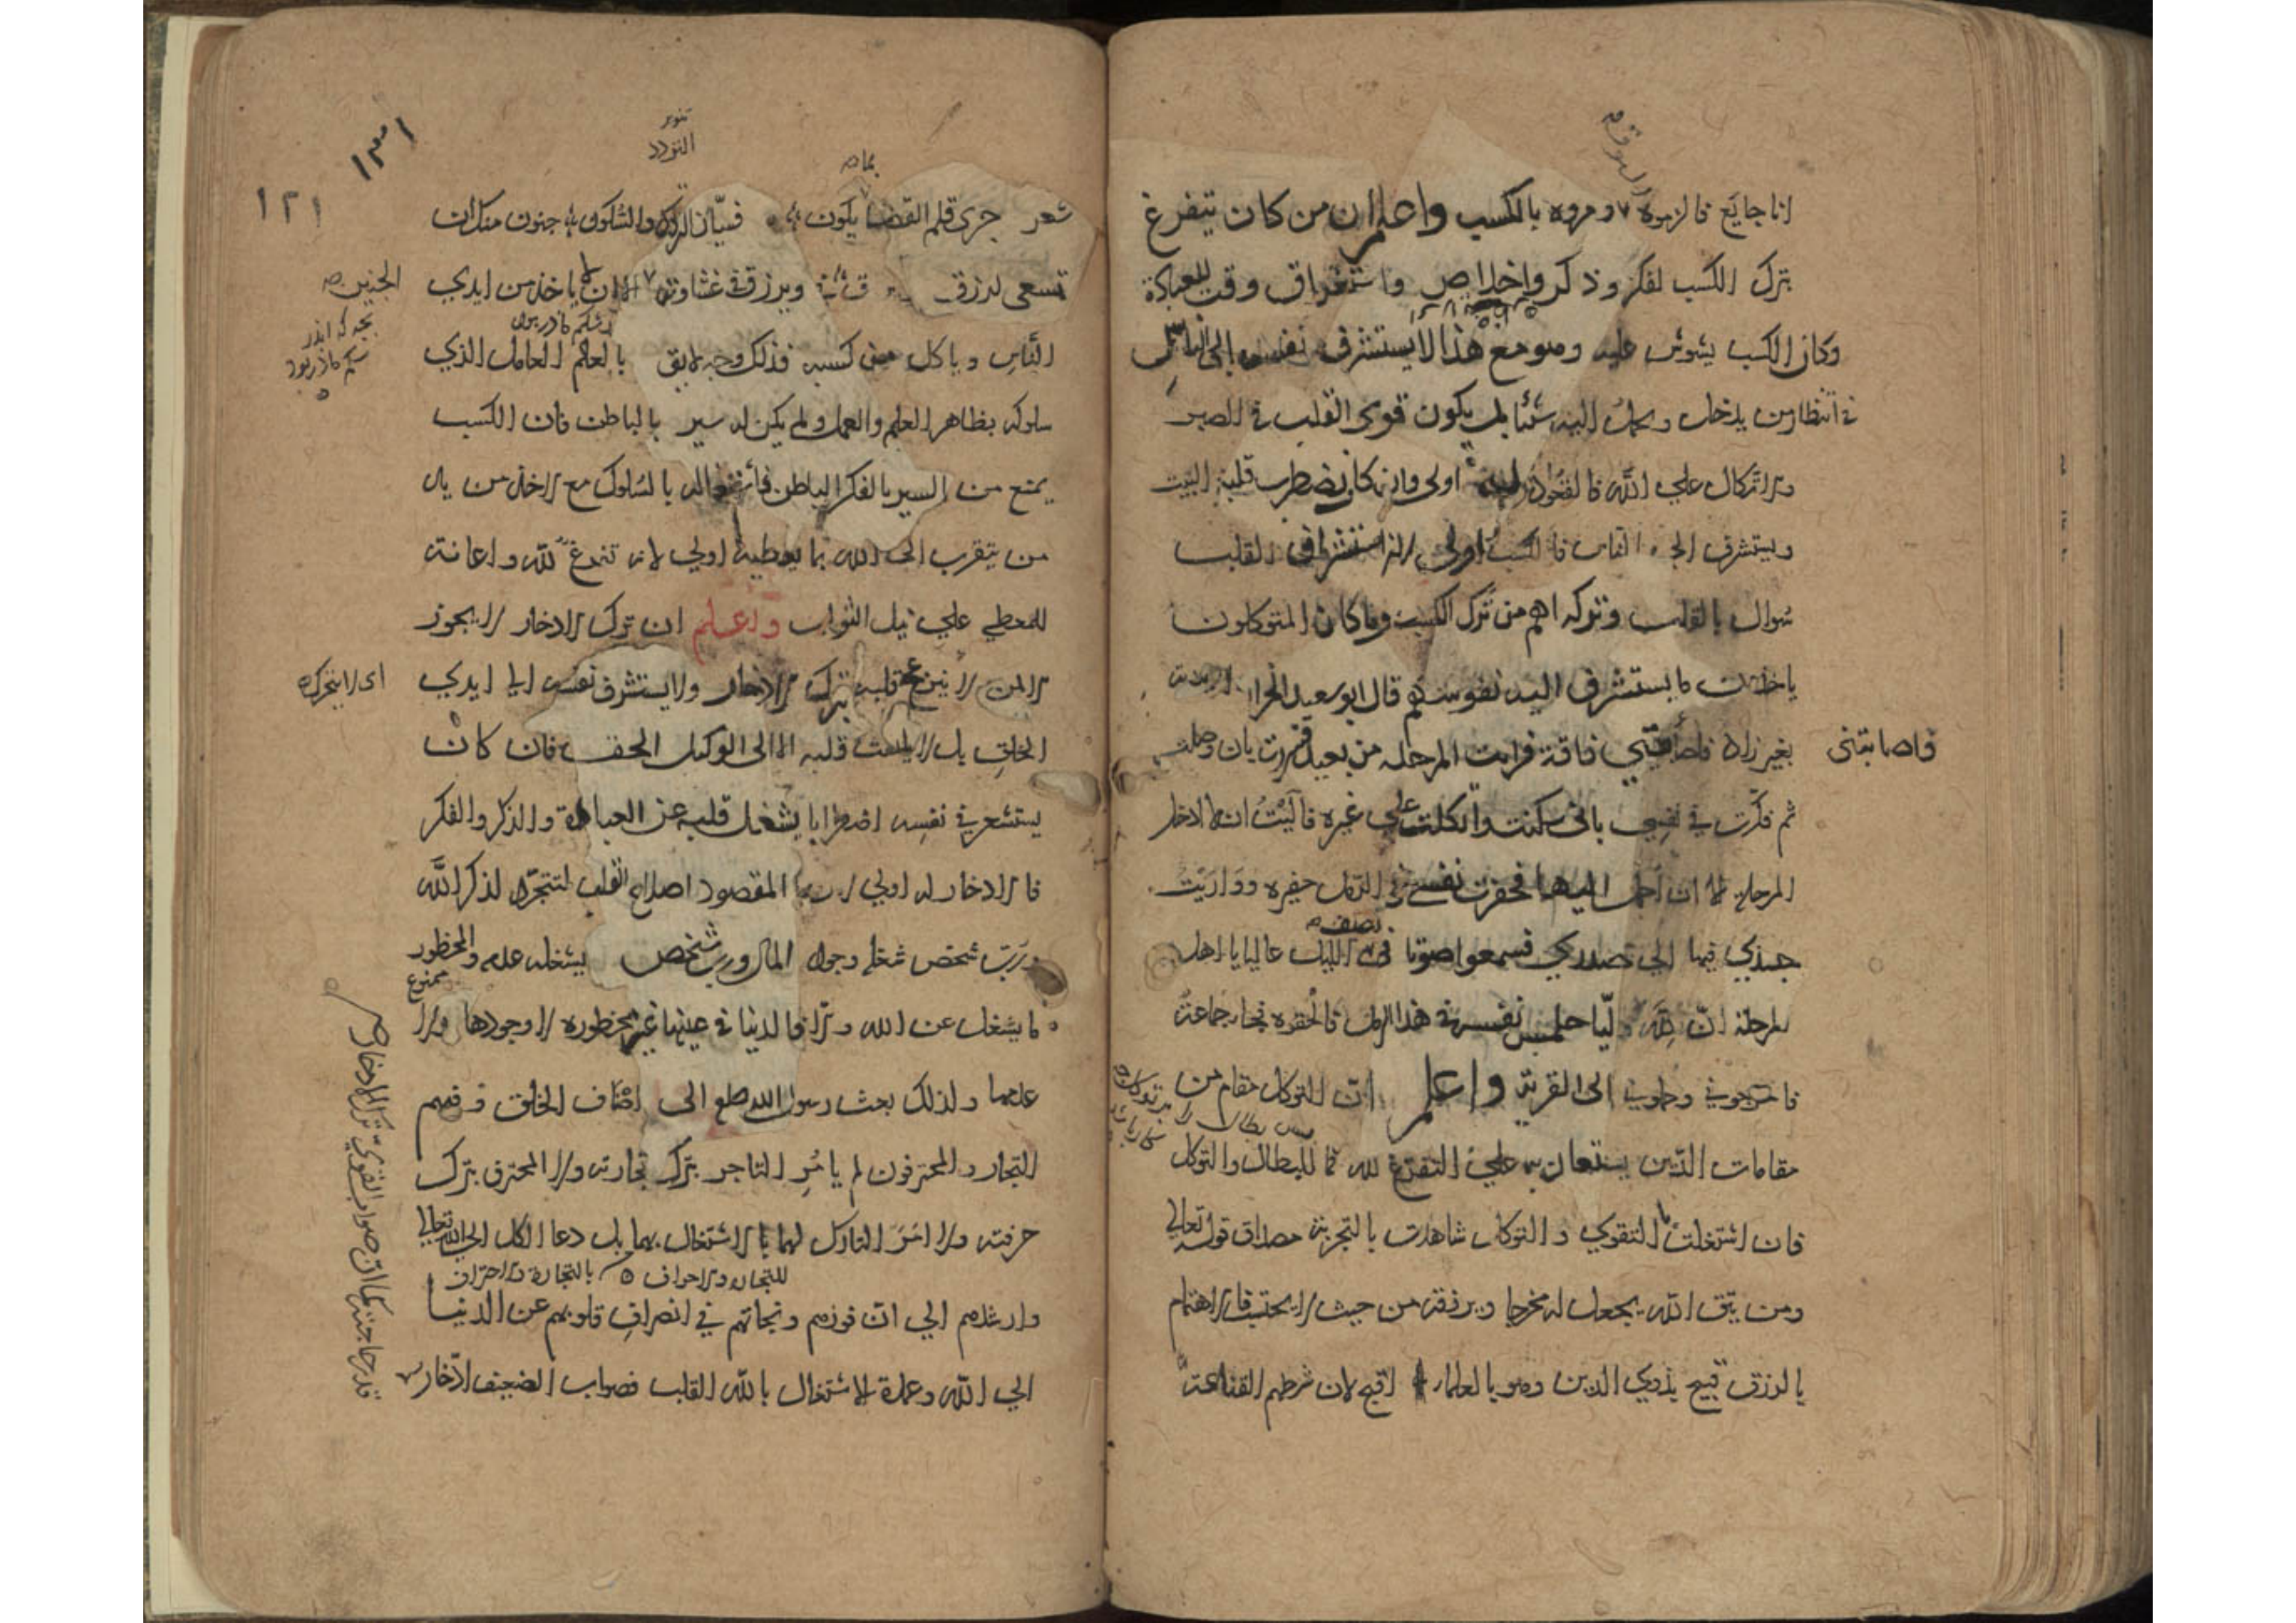 انا جايع فالزموه السوق ومروه بالكسب واعلم ان من كان يتفرغ
بترك الكسب لفكر وذكر واخلاص واستغراق وقت للعبادة
وكان الكسب يشوش عليه وهو مع هذا لا يستشرف نفسه الى الناس
في انتظار من يدخل ويحمل اليه شئا بل يكون قوى القلب في الصبر
والاتكال علي الله فالقعود له اولى وان كان يضطرب قلبه في البيت
ويستشرف الى الناس فالكسب اولى لان استشراف القلب
سوال بالقلب وتركه اهم من ترك الكسب وما كان المتوكلون
ياخذون ما يستشرف اليه نفوسهم قال ابو سعيد الخراز
بغير زاد فاصابتني فاقة فرايت المرحله من بعيد فسررت بان وصلت
فاصابتنى
ثم فكّرت في نفسي باني سكنت واتكلت علي غيره فآليت ان لا ادخل
المرحلة الا ان احمل اليها فحفرت نفسي في الرمل حفيره وواريت
جسدي فيها الي صدري فسمعوا صوتا في نصف الليل عاليا يا اهل
المرحلة ان لله وليّا حبس نفسه في هذا الرمل فالحقوه فجاء جماعة
فاخرجوني وحملوني الى القرية واعلم ان التوكل مقام من
مقامات الدّين يستعان به علي التفرغ لله فما للبطال والتوكل
فان اشتغلت بالتقوي والتوكل شاهدت بالتجربة مصداق قوله تعالي
ومن يتق الله يجعل له مخرجا ويرزقه من حيث لا يحتسب فالاهتمام
بالرزق قبيح بذوي الدين وهو بالعلماء اقبح لان شرطهم القناعة
١٣١
١٢١
شعر جرى قلم القضا بما يكون فسيّان التحرك والسّكون جنون منك ان
تسعى لرزق ويرزق في غشاوته الجنين
الناس وياكل من كسبه فذلك وجه لايق بالعالم العامل الذي
سلوكه بظاهر العلم والعمل ولم يكن له سير بالباطن فان الكسب
يمنع من السير بالفكر الباطن فاشتغاله بالسلوك مع الاخذ من يد
من يتقرب الى الله بما يعطيه اولي لانه تفرغ لله واعانة
للمعطي علي نيل الثواب واعلم ان ترك الادخار لا يجوز
الا لمن لا ينزعج قلبه بترك الادخار ولا يستشرف نفسه الي ايدي
اى لا يتحرك
الخلق بل لا يلتفت قلبه الا الى الوكيل الحق فان كان
يستشعر في نفسه اضطرابا يشغل قلبه عن العبادة والذكر والفكر
فالادخار له اولي المقصود اصلاح القلب لتتجرّد لذكر الله
وربّ شخص شغله وجود المال وربّ شخص يشغله عدمه والمحظور
ممنوع
ما يشغل عن الله والا فالدنيا في عينها غير محظوره لا وجودها ولا
عدمها ولذلك بعث رسول الله صلعم الى اصناف الخلق وفيهم
التجار والمحترفون لم يامر التاجر بترك تجارته ولا المحترف بترك
حرفته ولا امر التارك لهما بالاشتغال بهما بل دعا الكل الى الله تعالي
للتجارة والاحراف بالتجارة والاحتراف
وارشدهم الي انّ فوزهم ونجاتهم في انصراف قلوبهم عن الدنيا
الي الله وعمدة الاشتغال بالله القلب فصواب الضعيف ادّخار
قدر حاجته كما ان صواب القوي ترك الادخار